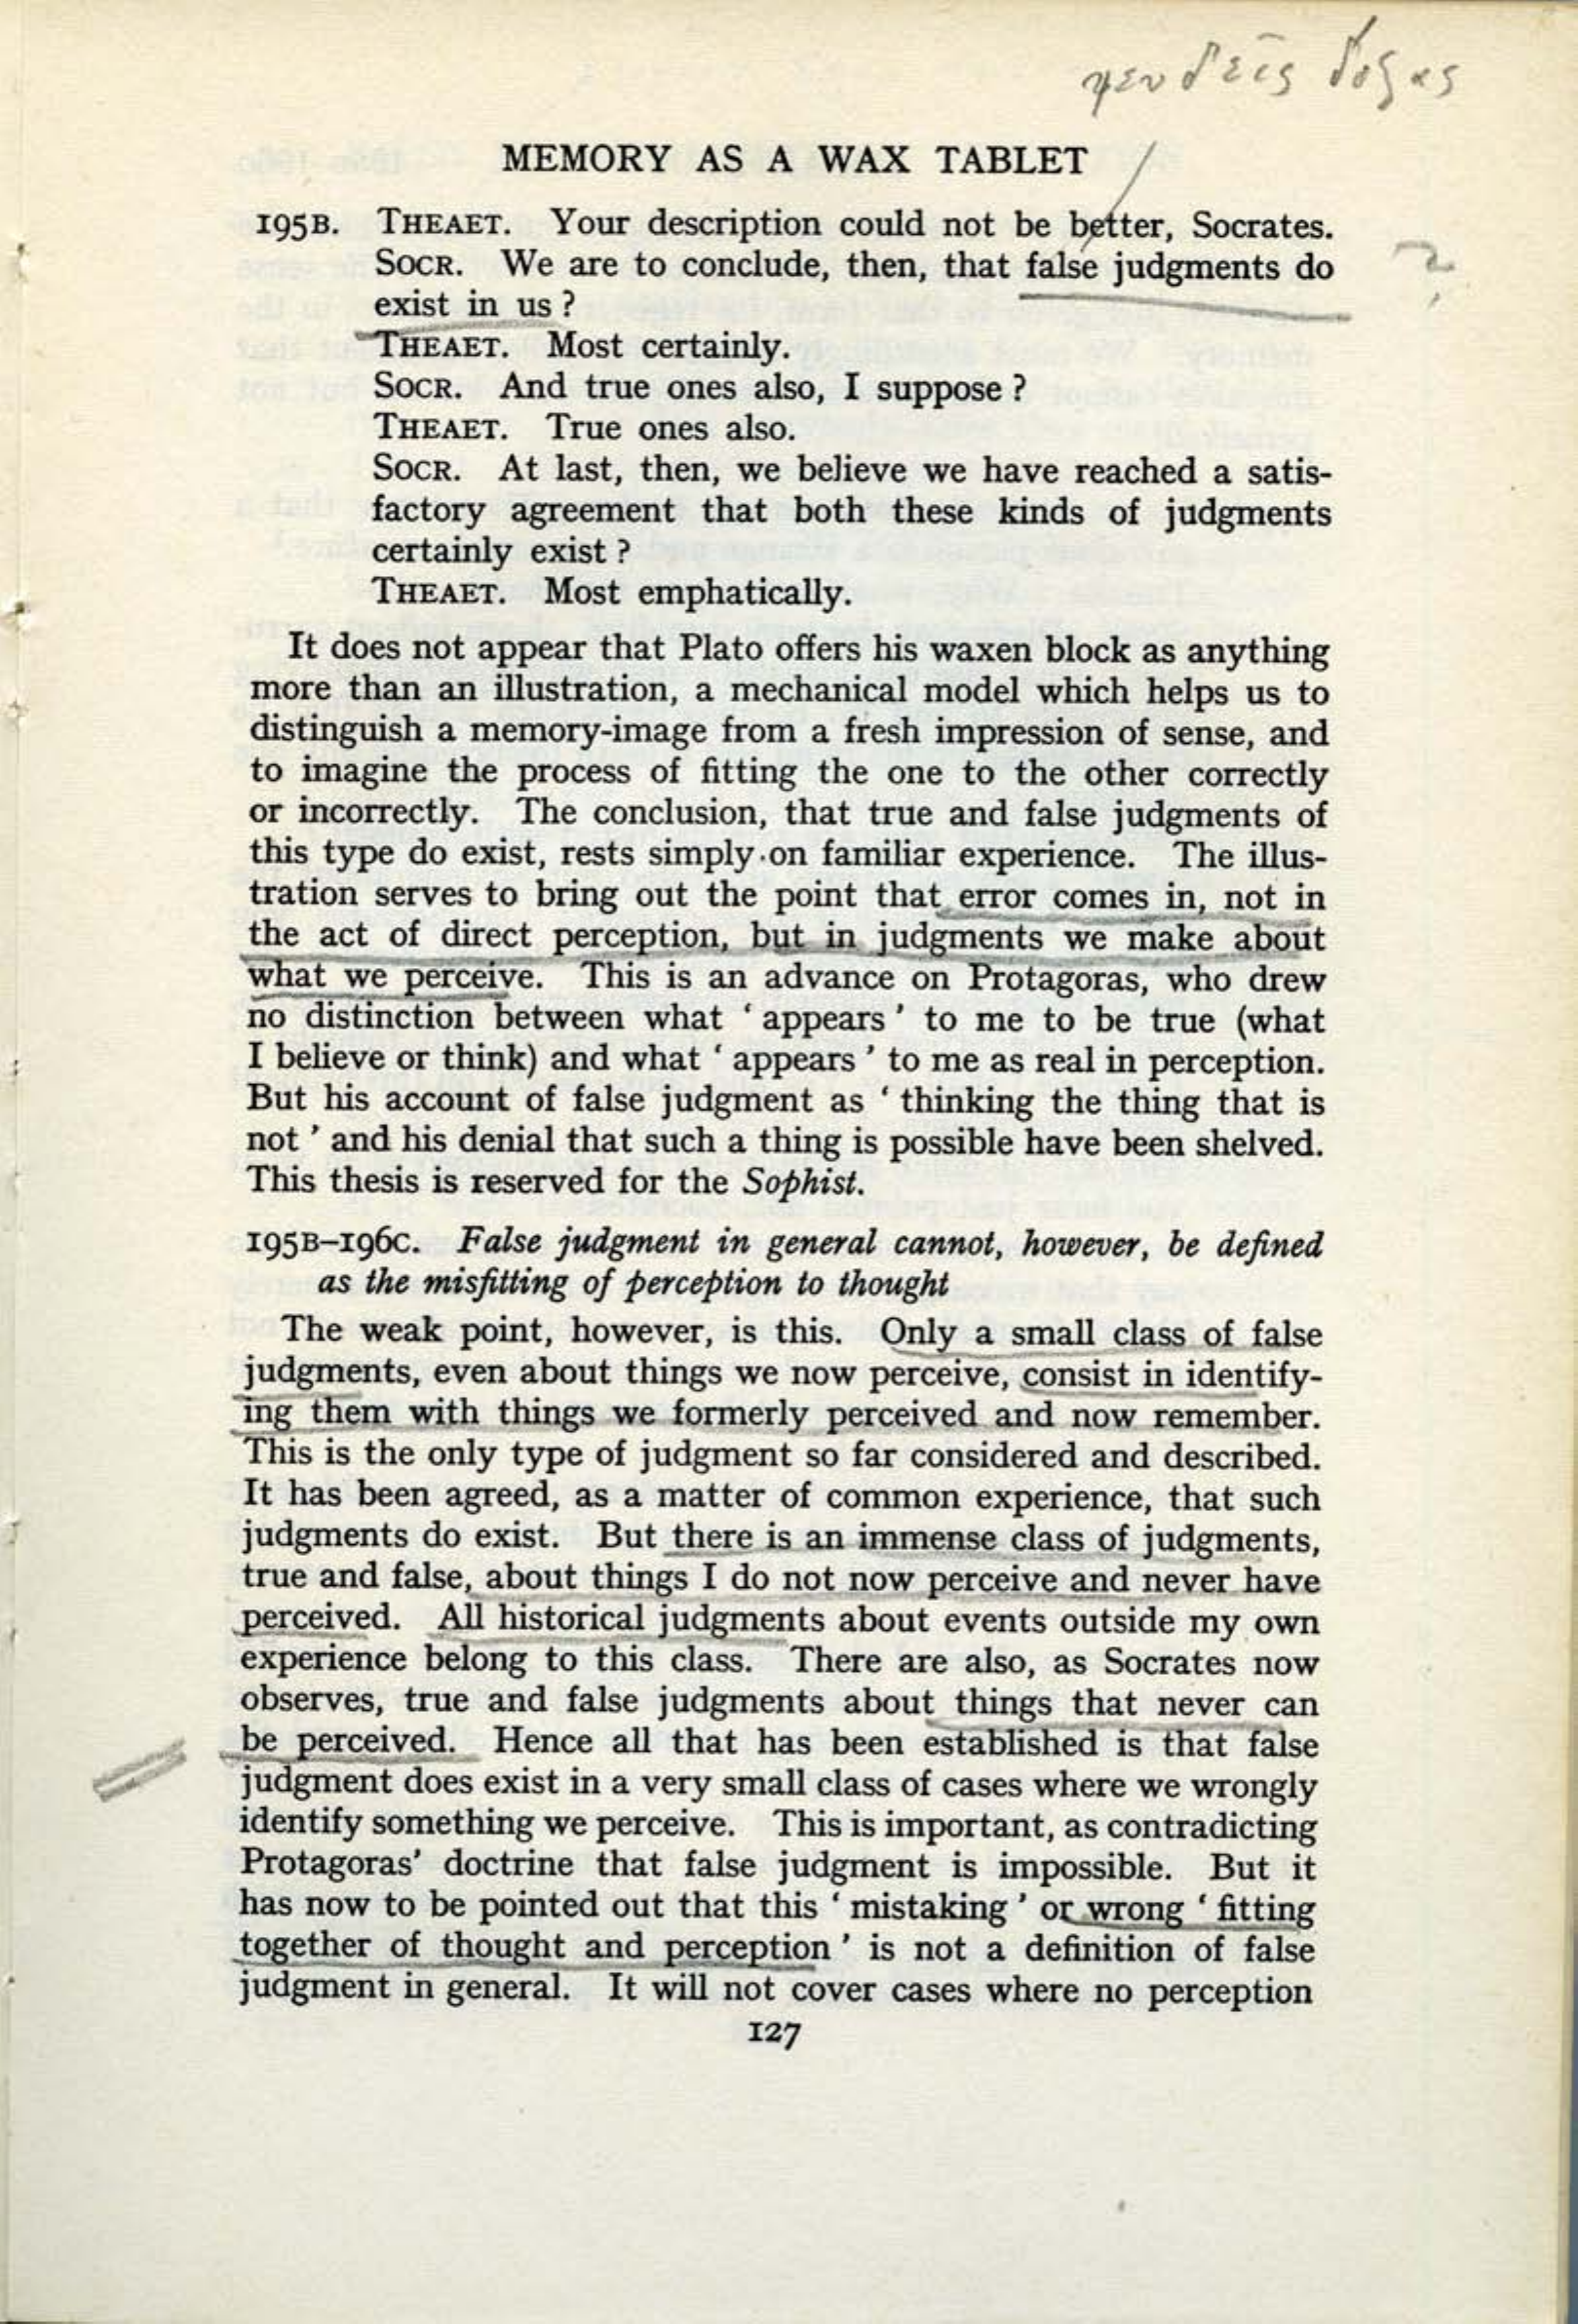 ψευδεῖς δόξας
MEMORY AS A WAX TABLET
195B. THEAET. Your description could not be better, Socrates.
SOCR. We are to conclude, then, that false judgments do
?
exist in us ?
THEAET. Most certainly.
SOCR. And true ones also, I suppose ?
THEAET. True ones also.
SOCR. At last, then, we believe we have reached a satis-
factory agreement that both these kinds of judgments
certainly exist ?
THEAET. Most emphatically.
It does not appear that Plato offers his waxen block as anything
more than an illustration, a mechanical model which helps us to
distinguish a memory-image from a fresh impression of sense, and
to imagine the process of fitting the one to the other correctly
or incorrectly. The conclusion, that true and false judgments of
this type do exist, rests simply on familiar experience. The illus-
tration serves to bring out the point that error comes in, not in
the act of direct perception, but in judgments we make about
what we perceive. This is an advance on Protagoras, who drew
no distinction between what ‘ appears ’ to me to be true (what
I believe or think) and what ‘ appears ’ to me as real in perception.
But his account of false judgment as ‘ thinking the thing that is
not ’ and his denial that such a thing is possible have been shelved.
This thesis is reserved for the Sophist.
195B–196C. False judgment in general cannot, however, be defined
as the misfitting of perception to thought
The weak point, however, is this. Only a small class of false
judgments, even about things we now perceive, consist in identify-
ing them with things we formerly perceived and now remember.
This is the only type of judgment so far considered and described.
It has been agreed, as a matter of common experience, that such
judgments do exist. But there is an immense class of judgments,
true and false, about things I do not now perceive and never have
perceived. All historical judgments about events outside my own
experience belong to this class. There are also, as Socrates now
observes, true and false judgments about things that never can
be perceived. Hence all that has been established is that false
judgment does exist in a very small class of cases where we wrongly
identify something we perceive. This is important, as contradicting
Protagoras’ doctrine that false judgment is impossible. But it
has now to be pointed out that this ‘ mistaking ’ or wrong ‘ fitting
together of thought and perception ’ is not a definition of false
judgment in general. It will not cover cases where no perception
127